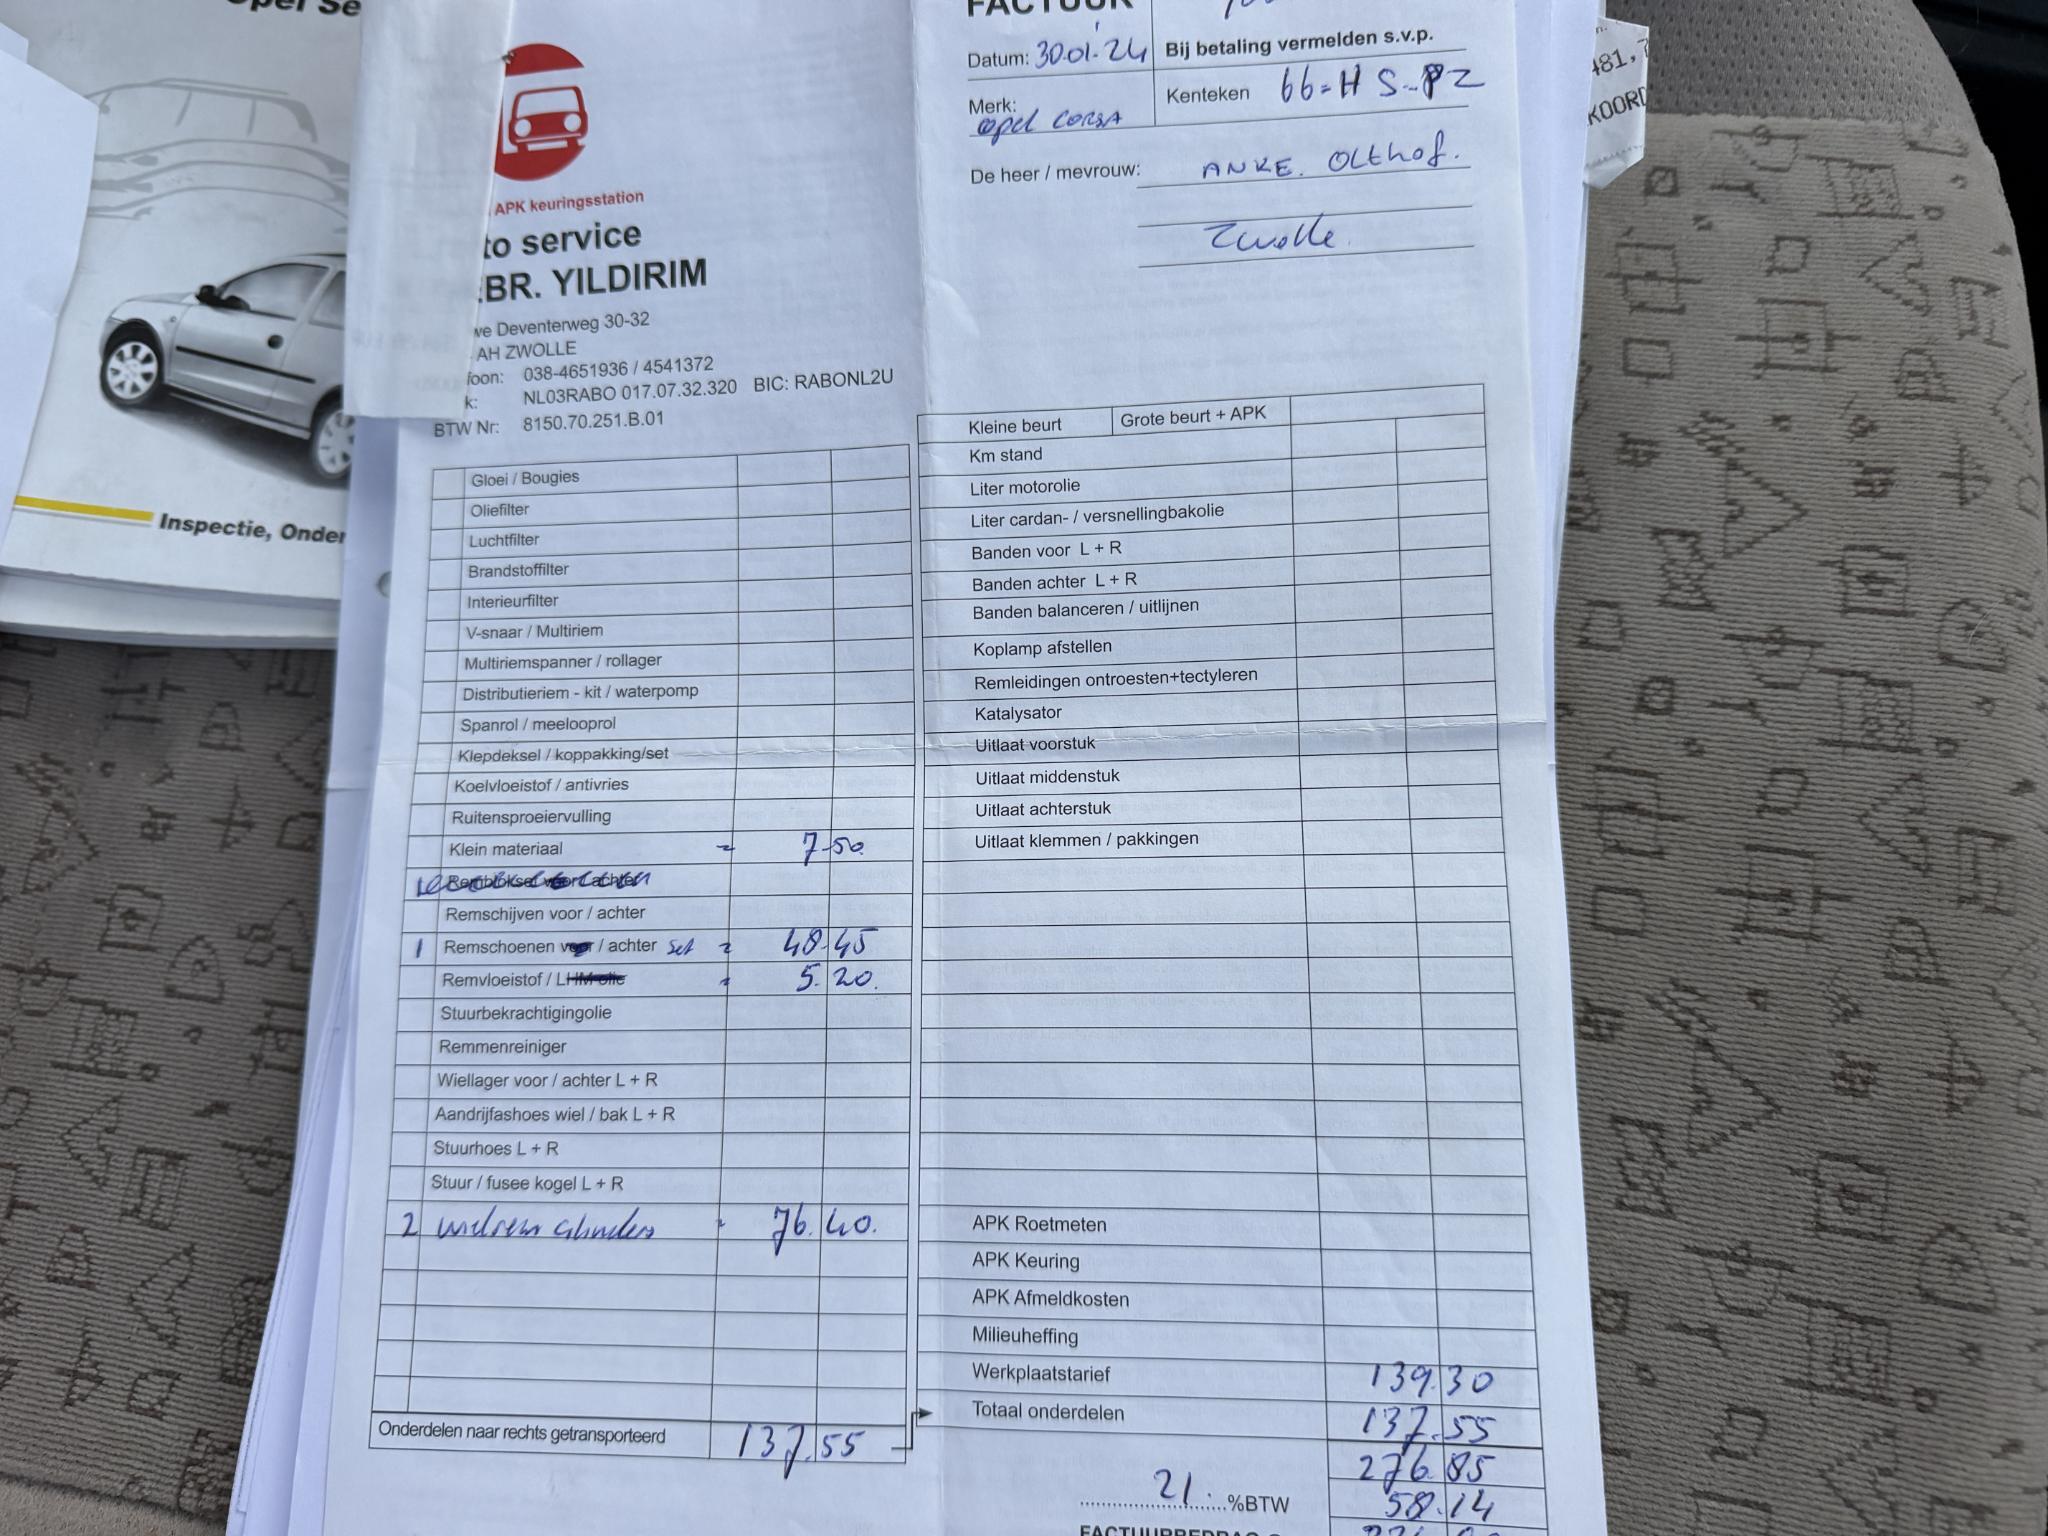 Opel Se
Inspectie, Onder
APK keuringsstation
to service
BR. YILDIRIM
we Deventerweg 30-32
AH ZWOLLE
foon: 038-4651936 / 4541372
k: NL03RABO 017.07.32.320 BIC: RABONL2U
BTW Nr: 8150.70.251.B.01
FACTUUR
Datum: 30.01.24
Bij betaling vermelden s.v.p.
Merk: Opel CORSA
Kenteken 66-HS-PZ
De heer / mevrouw: ANKE. Olthof.
Zwolle.
481,
KOORD
Gloei / Bougies
Oliefilter
Luchtfilter
Brandstoffilter
Interieurfilter
V-snaar / Multiriem
Multiriemspanner / rollager
Distributieriem - kit / waterpomp
Spanrol / meelooprol
Klepdeksel / koppakking/set
Koelvloeistof / antivries
Ruitensproeiervulling
Klein materiaal = 7.50
Remblokset voor achter
Remschijven voor / achter
1 Remschoenen voor / achter Set = 48.45
Remvloeistof / LHM olie = 5.20.
Stuurbekrachtigingolie
Remmenreiniger
Wiellager voor / achter L + R
Aandrijfashoes wiel / bak L + R
Stuurhoes L + R
Stuur / fusee kogel L + R
2 wielrem cilinders = 76.40.
Onderdelen naar rechts getransporteerd 137.55
Kleine beurt Grote beurt + APK
Km stand
Liter motorolie
Liter cardan- / versnellingbakolie
Banden voor L + R
Banden achter L + R
Banden balanceren / uitlijnen
Koplamp afstellen
Remleidingen ontroesten+tectyleren
Katalysator
Uitlaat voorstuk
Uitlaat middenstuk
Uitlaat achterstuk
Uitlaat klemmen / pakkingen
APK Roetmeten
APK Keuring
APK Afmeldkosten
Milieuheffing
Werkplaatstarief 139.30
Totaal onderdelen 137.55
276.85
21. %BTW 58.14